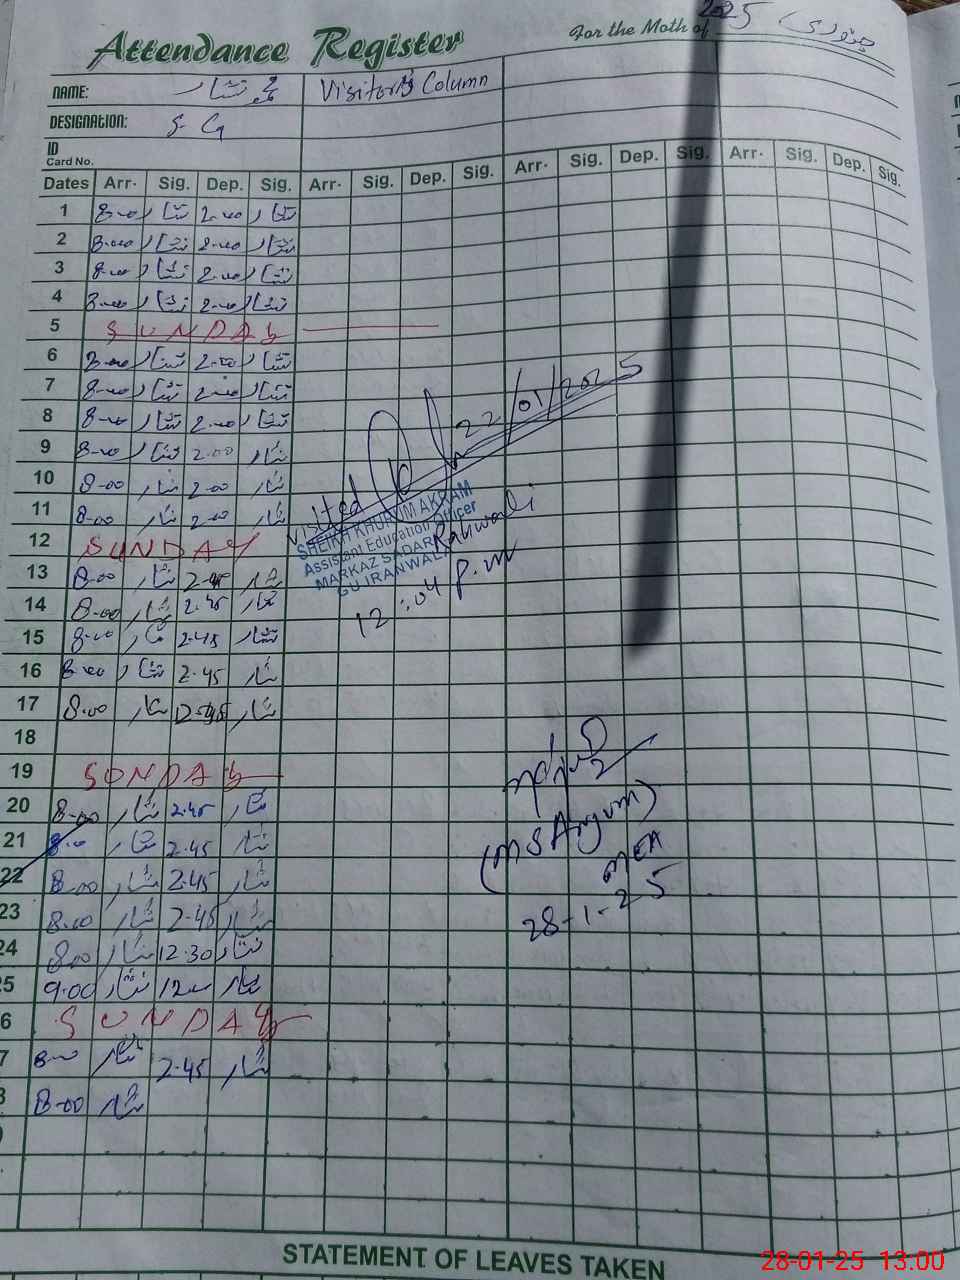 Attendance Register For the Moth of جنوری 2025
NAME: محمد نثار Visitor's Column
DESIGNATION: S-G
ID
Card No.
Dates Arr. Sig. Dep. Sig. Arr. Sig. Dep. Sig. Arr. Sig. Dep. Sig. Arr. Sig. Dep. Sig.
1 8-00 نثار 2-00 نثار
2 8-00 نثار 2-00 نثار
3 8-00 نثار 2-00 نثار
4 8-00 نثار 2-00 نثار
5 SUNDAY
6 8-00 نثار 2-00 نثار
7 8-00 نثار 2-00 نثار
8 8-00 نثار 2-00 نثار
22/01/2025
9 8-00 نثار 2-00 نثار
10 8-00 نثار 2-00 نثار
11 8-00 نثار 2-00 نثار
visited
SHEIKH KHURUM AKRAM
Assistant Education Officer
MARKAZ SADAR Rahwali
GUJRANWALA
12:04 P.m
12 SUNDAY
13 8-00 نثار 2-45 نثار
14 8-00 نثار 2-45 نثار
15 8-00 نثار 2-45 نثار
16 8-00 نثار 2-45 نثار
17 8-00 نثار نثار
18
19 SUNDAY
20 8-00 نثار 2-45 نثار
21 8-00 نثار 2-45 نثار
22 8-00 نثار 2-45 نثار
23 8-00 نثار 2-45 نثار
24 8-00 نثار 12-30 نثار
25 9-00 نثار 12-00 نثار
(MS Anjum)
MEA
28-1-25
6 SUNDAY
7 8-00 نثار 2-45 نثار
8 8-00 نثار
STATEMENT OF LEAVES TAKEN
28-01-25 13.00